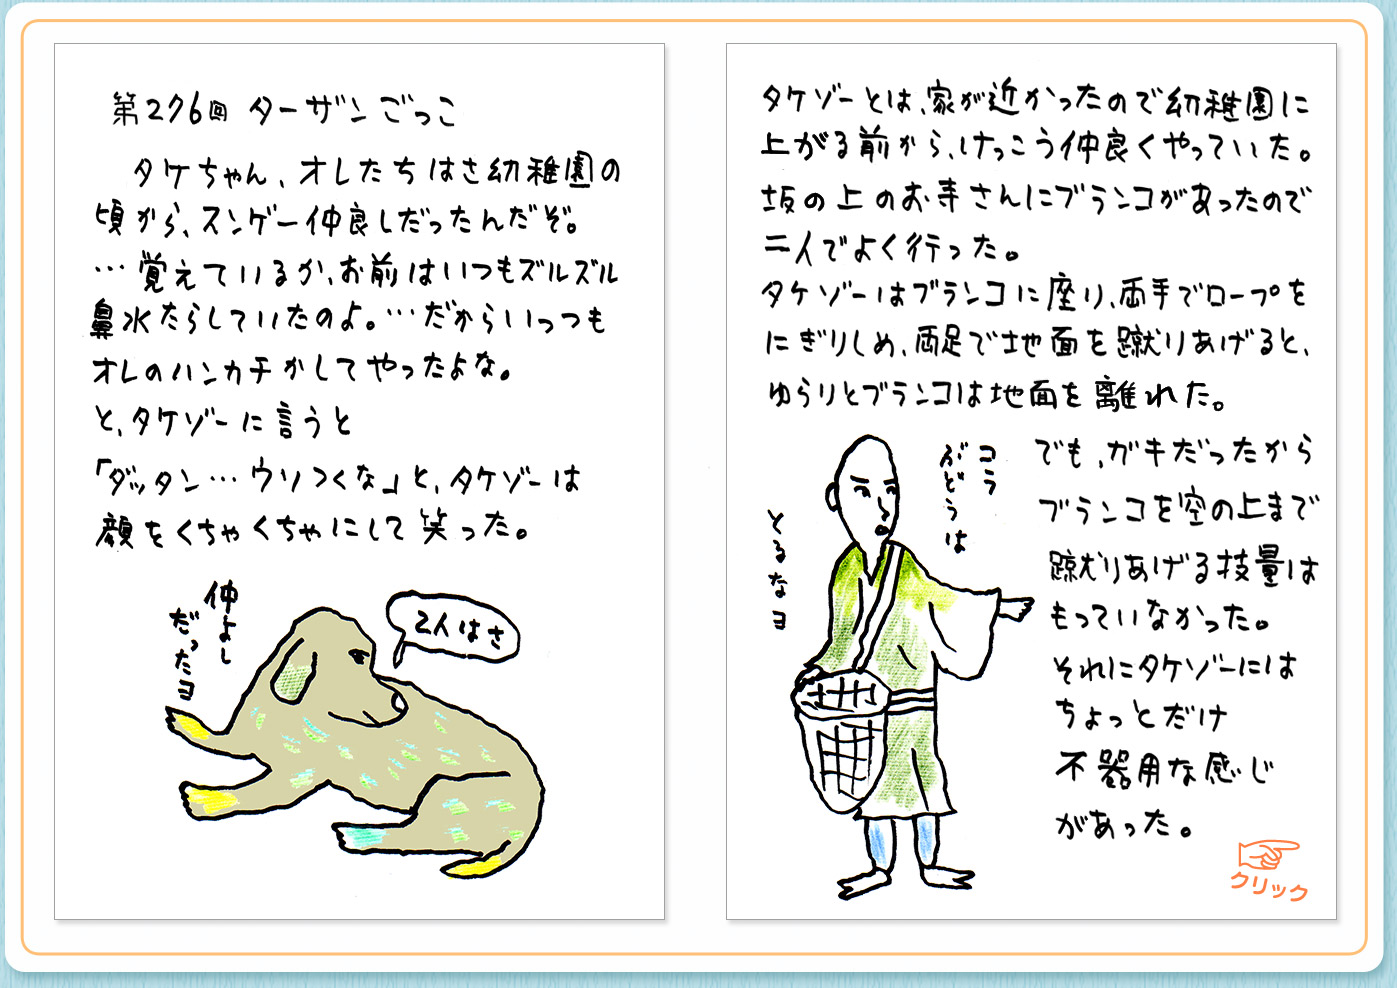 第276回 ターザンごっこ
タケちゃん、オレたちはさ幼稚園の
頃から、スンゲー仲良しだったんだぞ。
…覚えているか、お前はいつもズルズル
鼻水たらしていたのよ。…だからいっつも
オレのハンカチかしてやったよな。
と、タケゾーに言うと
「ダッタン…ウソつくな」と、タケゾーは
顔をくちゃくちゃにして笑った。
仲よし
だったヨ
2人はさ
タケゾーとは、家が近かったので幼稚園に
上がる前から、けっこう仲良くやっていた。
坂の上のお寺さんにブランコがあったので
二人でよく行った。
タケゾーはブランコに座り、両手でロープを
にぎりしめ、両足で地面を蹴りあげると、
ゆらりとブランコは地面を離れた。
でも、ガキだったから
ブランコを空の上まで
蹴りあげる技量は
もっていなかった。
それにタケゾーには
ちょっとだけ
不器用な感じ
があった。
コラ
ぶどうは
とるなヨ
クリック